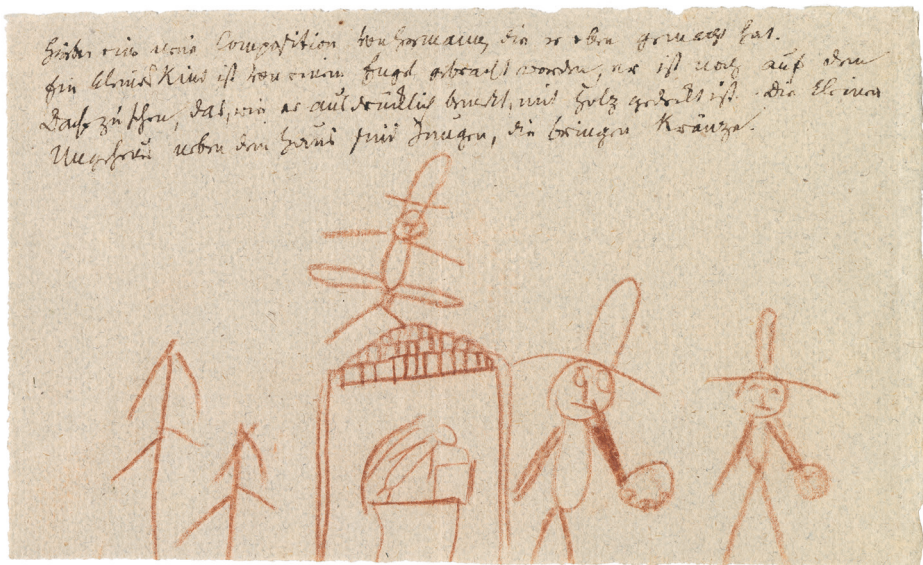 eine neue Composition von Hermann, die er eben gemacht hat.
Ein kleines Kind ist von einem Engel gebracht worden, er ist noch auf dem
Dache zu sehen, das, wie er ausdrücklich bemerkt, mit Holz gedeckt ist. Die kleinen
Ungeheuer neben dem Haus sind Jungen, die bringen Kränze.